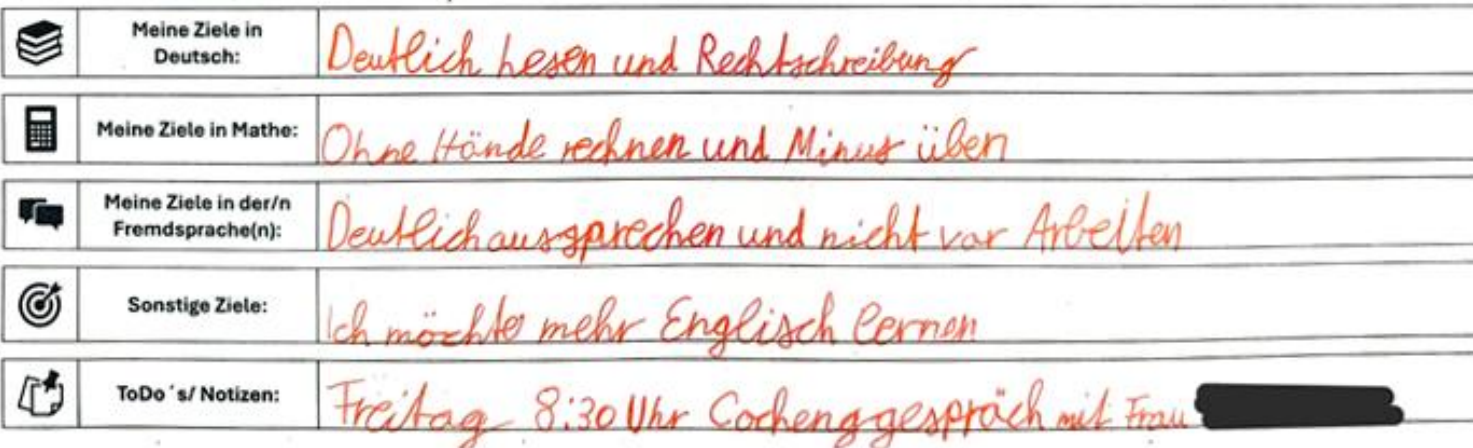 Meine Ziele in
Deutsch:
Deutlich Lesen und Rechtschreibung
Meine Ziele in Mathe:
Ohne Hände rechnen und Minus üben
Meine Ziele in der/n
Fremdsprache(n):
Deutlich aussprechen und nicht vor Arbeiten
Sonstige Ziele:
Ich möchte mehr Englisch lernen
ToDo´s/ Notizen:
Freitag 8:30 Uhr Cochenggespräch mit Frau